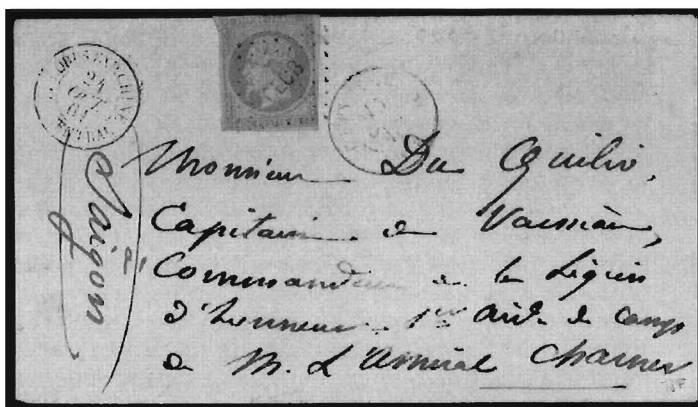 CORPS EXP. CHINE
24
OCT
61
Monsieur Du Quilio,
Capitaine de Vaisseau,
Commandeur de la Légion
d'honneur, 1er aide de camp
de M. L'Amiral Charner
à Saïgon